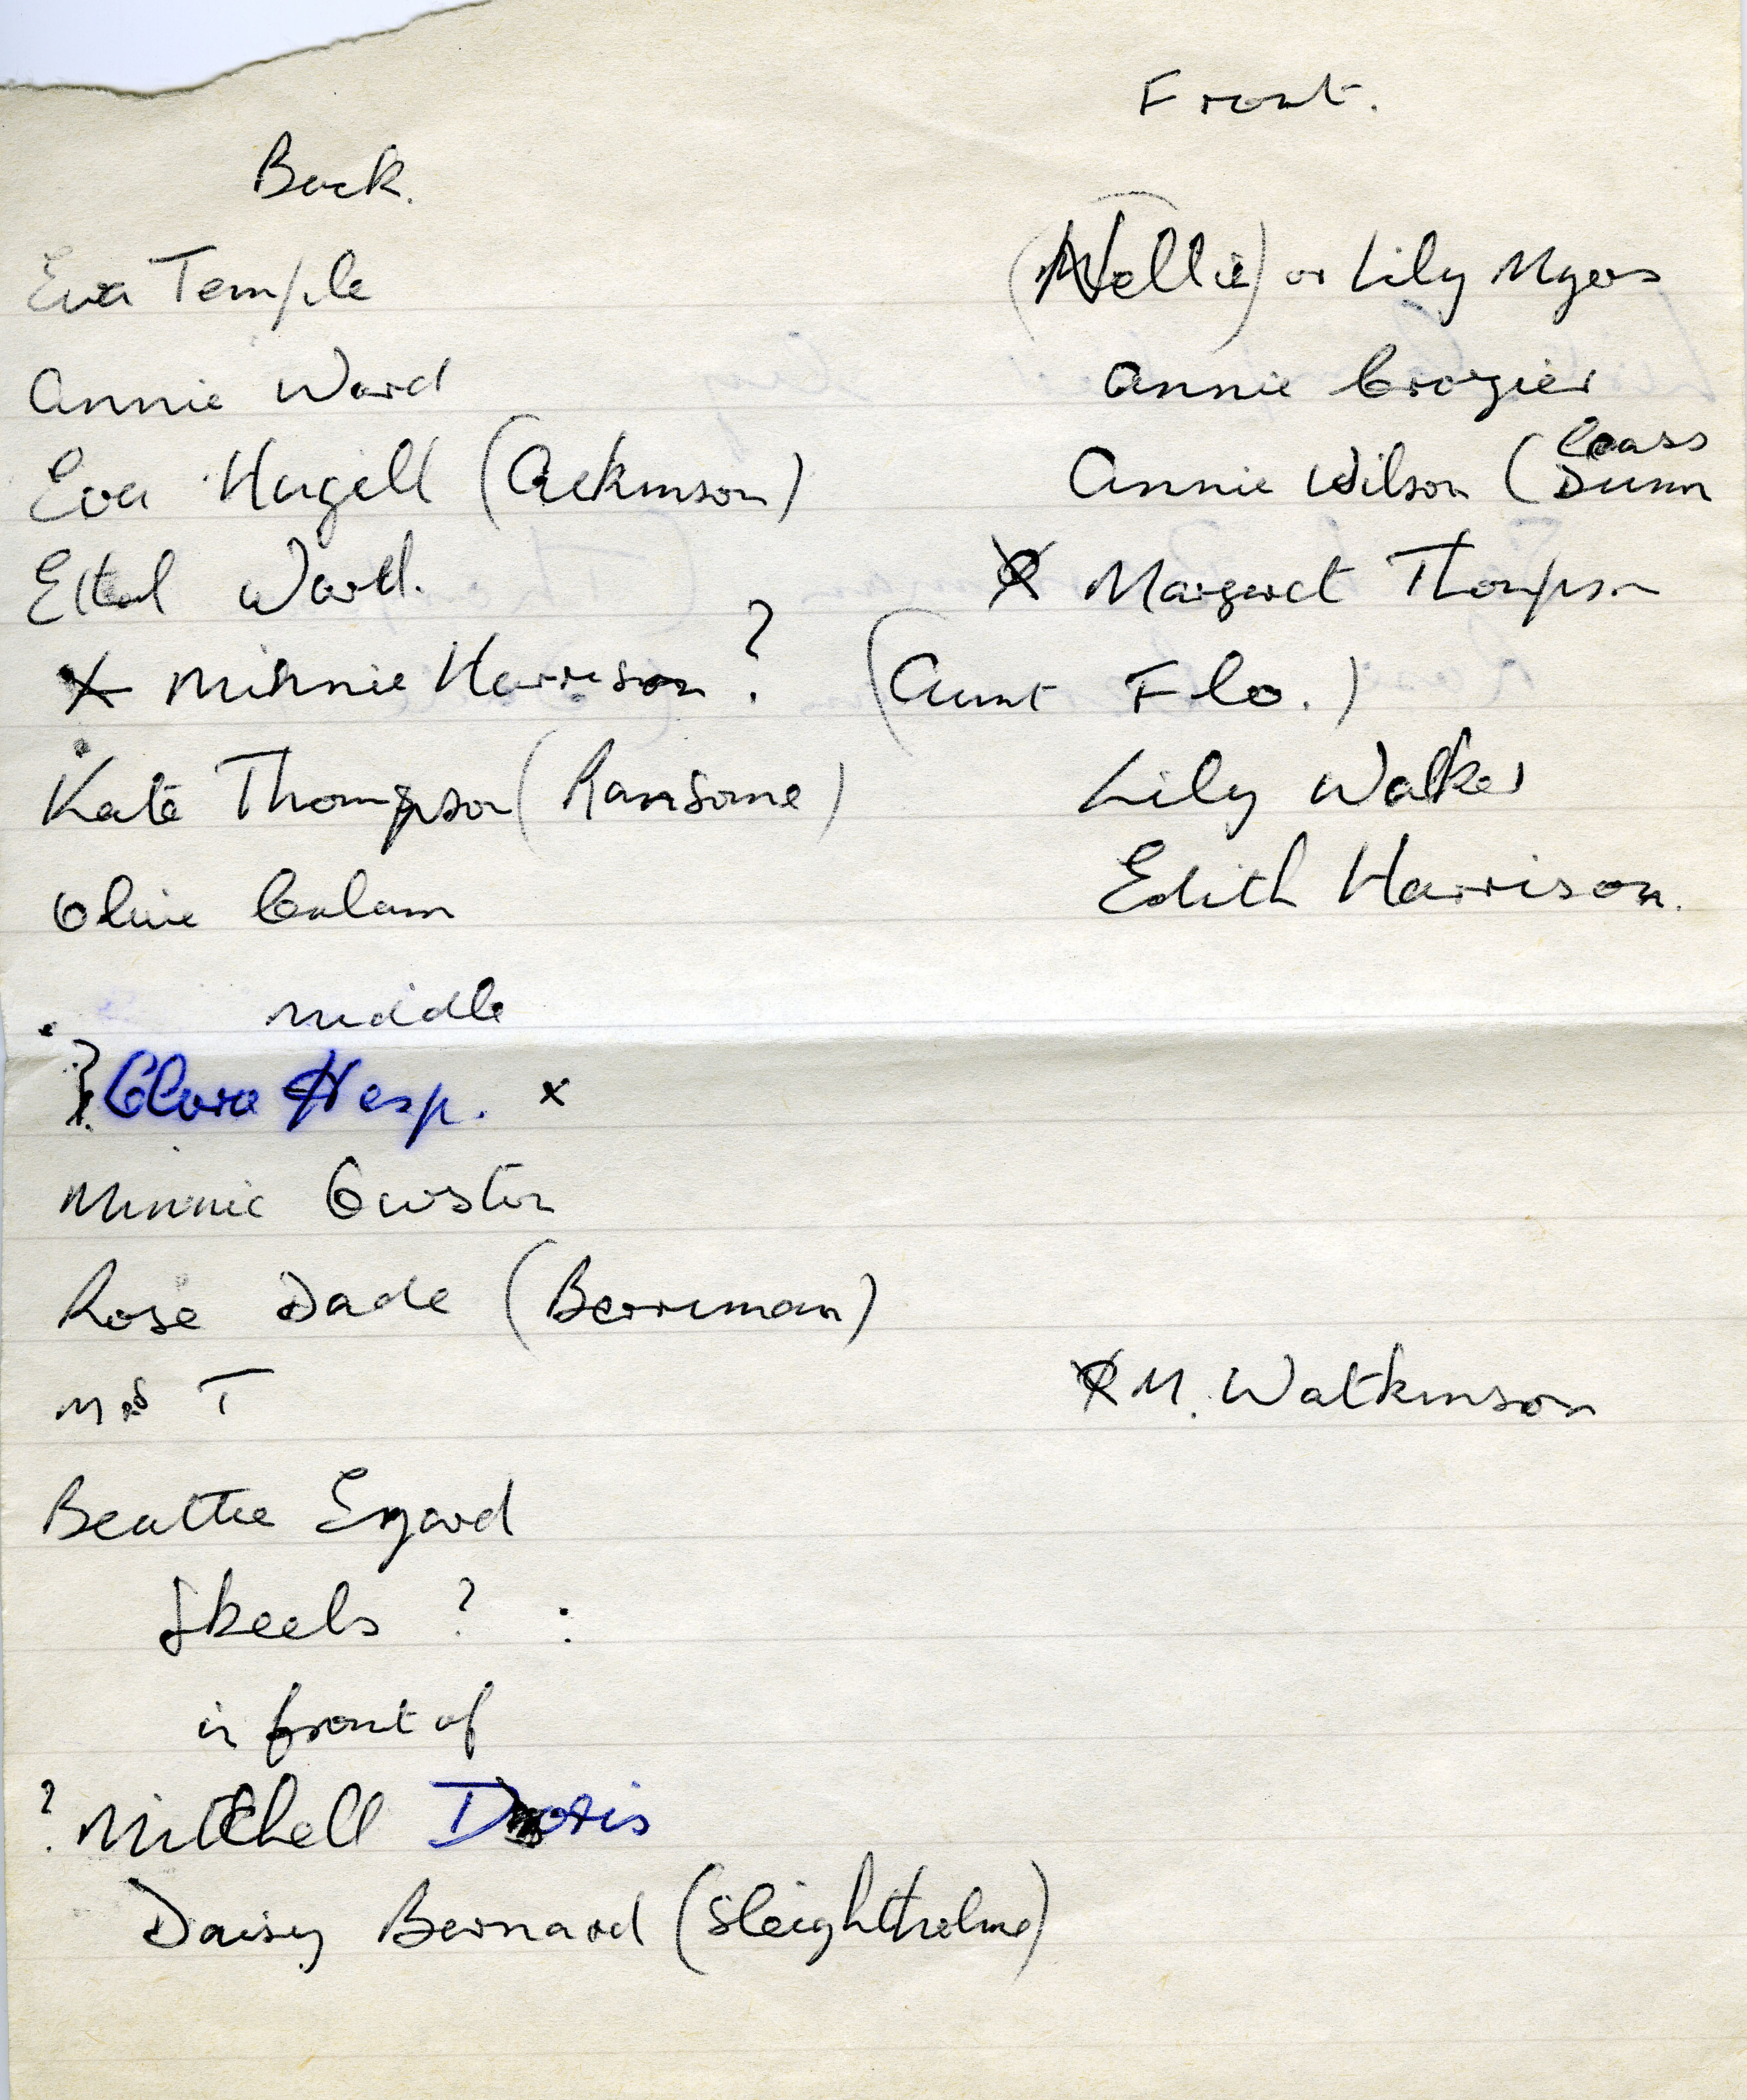 Back.
Eva Temple
Annie Ward
Eva Hugill (Atkinson)
Ethel Ward.
x Minnie Harrison ?
Kate Thompson (Ransome)
Olive Calam
Middle
? Clara Hesp. x
Minnie Custon
Rose Dade (Berriman)
Mrs T
Beattie
Skeels ? :
in front of
? Mitchell Doris
Daisy Bernard (Sleightholme)
Front.
(Nellie) or Lily Myers
Annie Crozier
Annie Wilson (Cass
Dunn
x Margaret Thompson
(Aunt Flo.)
Lily Walker
Edith Harrison.
x M. Watkinson